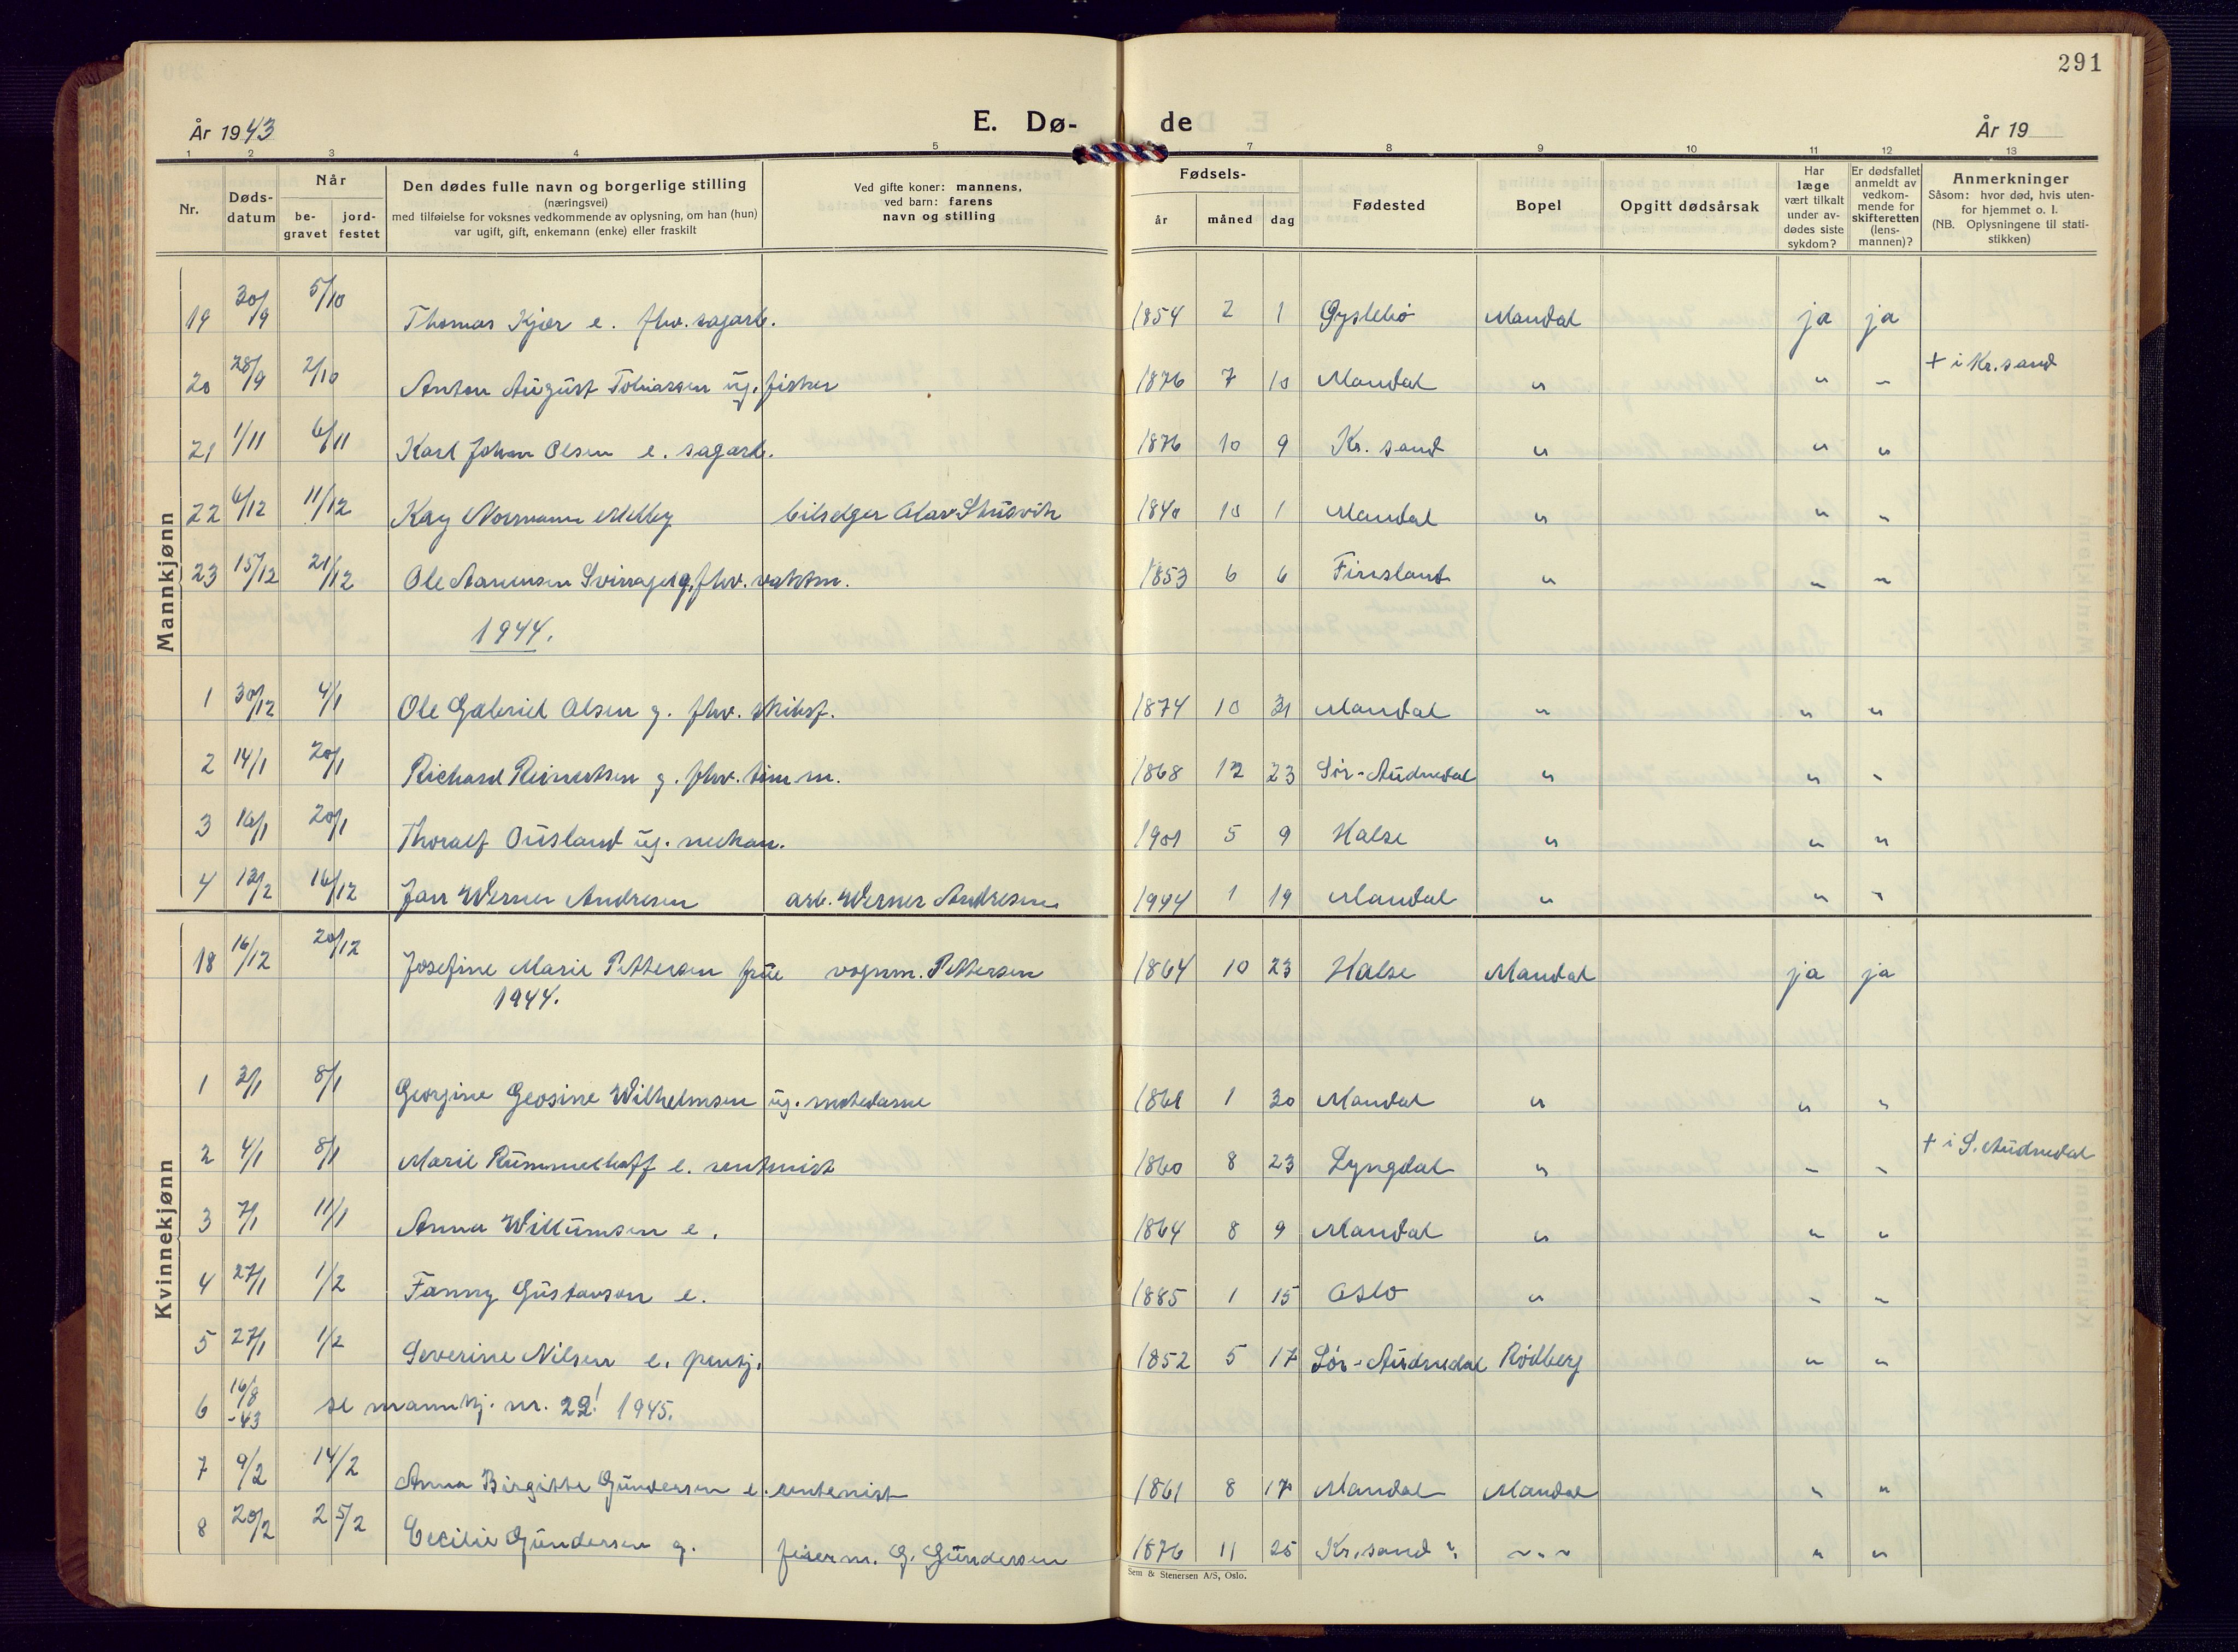 291
År 1943
E. Dø-
de
År 19
1 2 3 4 5 7 8 9 10 11 12 13
Nr.
Døds-
datum
Når
be-
gravet
jord-
festet
Den dødes fulle navn og borgerlige stilling
(næringsvei)
med tilføielse for voksnes vedkommende av oplysning, om han (hun)
var ugift, gift, enkemann (enke) eller fraskilt
Ved gifte koner: mannens,
ved barn: farens
navn og stilling
Fødsels-
år
måned
dag
Fødested
Bopel
Opgitt dødsårsak
Har
læge
vært tilkalt
under av-
dødes siste
sykdom?
Er dødsfallet
anmeldt av
vedkom-
mende for
skifteretten
(lens-
mannen)?
Anmerkninger
Såsom: hvor død, hvis uten-
for hjemmet o. l.
(NB. Oplysningene til stati-
stikken)
Mannkjønn
19 30/9 5/10 Thomas Kjær e. fhv. sagarb. 1854 2 1 Gyslebø Mandal ja ja
20 28/9 2/10 Anton August Tobiassen ug. fisker 1876 7 10 Mandal " " " + i Kr.sand
21 1/11 6/11 Karl Johan Olsen e. sagarb. 1876 10 9 Kr. sand " " "
22 6/12 11/12 Kay Normann Melby bilselger Olav 1840 10 1 Mandal " " "
23 15/12 21/12 Ole g. fhv. vaktm. 1853 6 6 Finsland " " "
1944.
1 30/12 4/1 Ole Gabriel Olsen g. fhv. skibsf. 1874 10 31 Mandal " " "
2 14/1 20/1 Richard Reinertsen g. fhv. tøm m. 1868 12 23 Sør-Audnedal " " "
3 16/1 20/1 Thoralf Ousland ug. mekan. 1901 5 9 Halse " " "
4 12/2 16/12 Jan Werner Andresen arb. Werner Andresen 1944 1 19 Mandal " " "
Kvinnekjønn
18 16/12 20/12 Josefine Marie Pettersen frue vognm. Pettersen 1864 10 23 Halse Mandal ja ja
1944.
1 2/1 8/1 Georgine Geosine Wilhelmsen ug. motedame 1861 1 30 Mandal " " "
2 4/1 8/1 Marie Rummelhoff e. rentenist 1860 8 23 Lyngdal " " " + i S. Audnedal
3 7/1 11/1 Anna Willumsen e. 1864 8 9 Mandal " " "
4 27/1 1/2 Fanny Gustavson e. 1885 1 15 Oslo " " "
5 27/1 1/2 Severine Nilsen e. pensj. 1852 5 17 Sør-Audnedal Rødberg " "
6 16/8 -43 se mannkj. nr. 22! 1945.
7 9/2 14/2 Anna Birgitte Gundersen e. rentenist 1861 8 17 Mandal Mandal " "
8 20/2 25/2 Cecilie Gundersen g. feierm. G. Gundersen 1876 11 25 Kr.sand " " "
Sem & Stenersen A/S, Oslo.